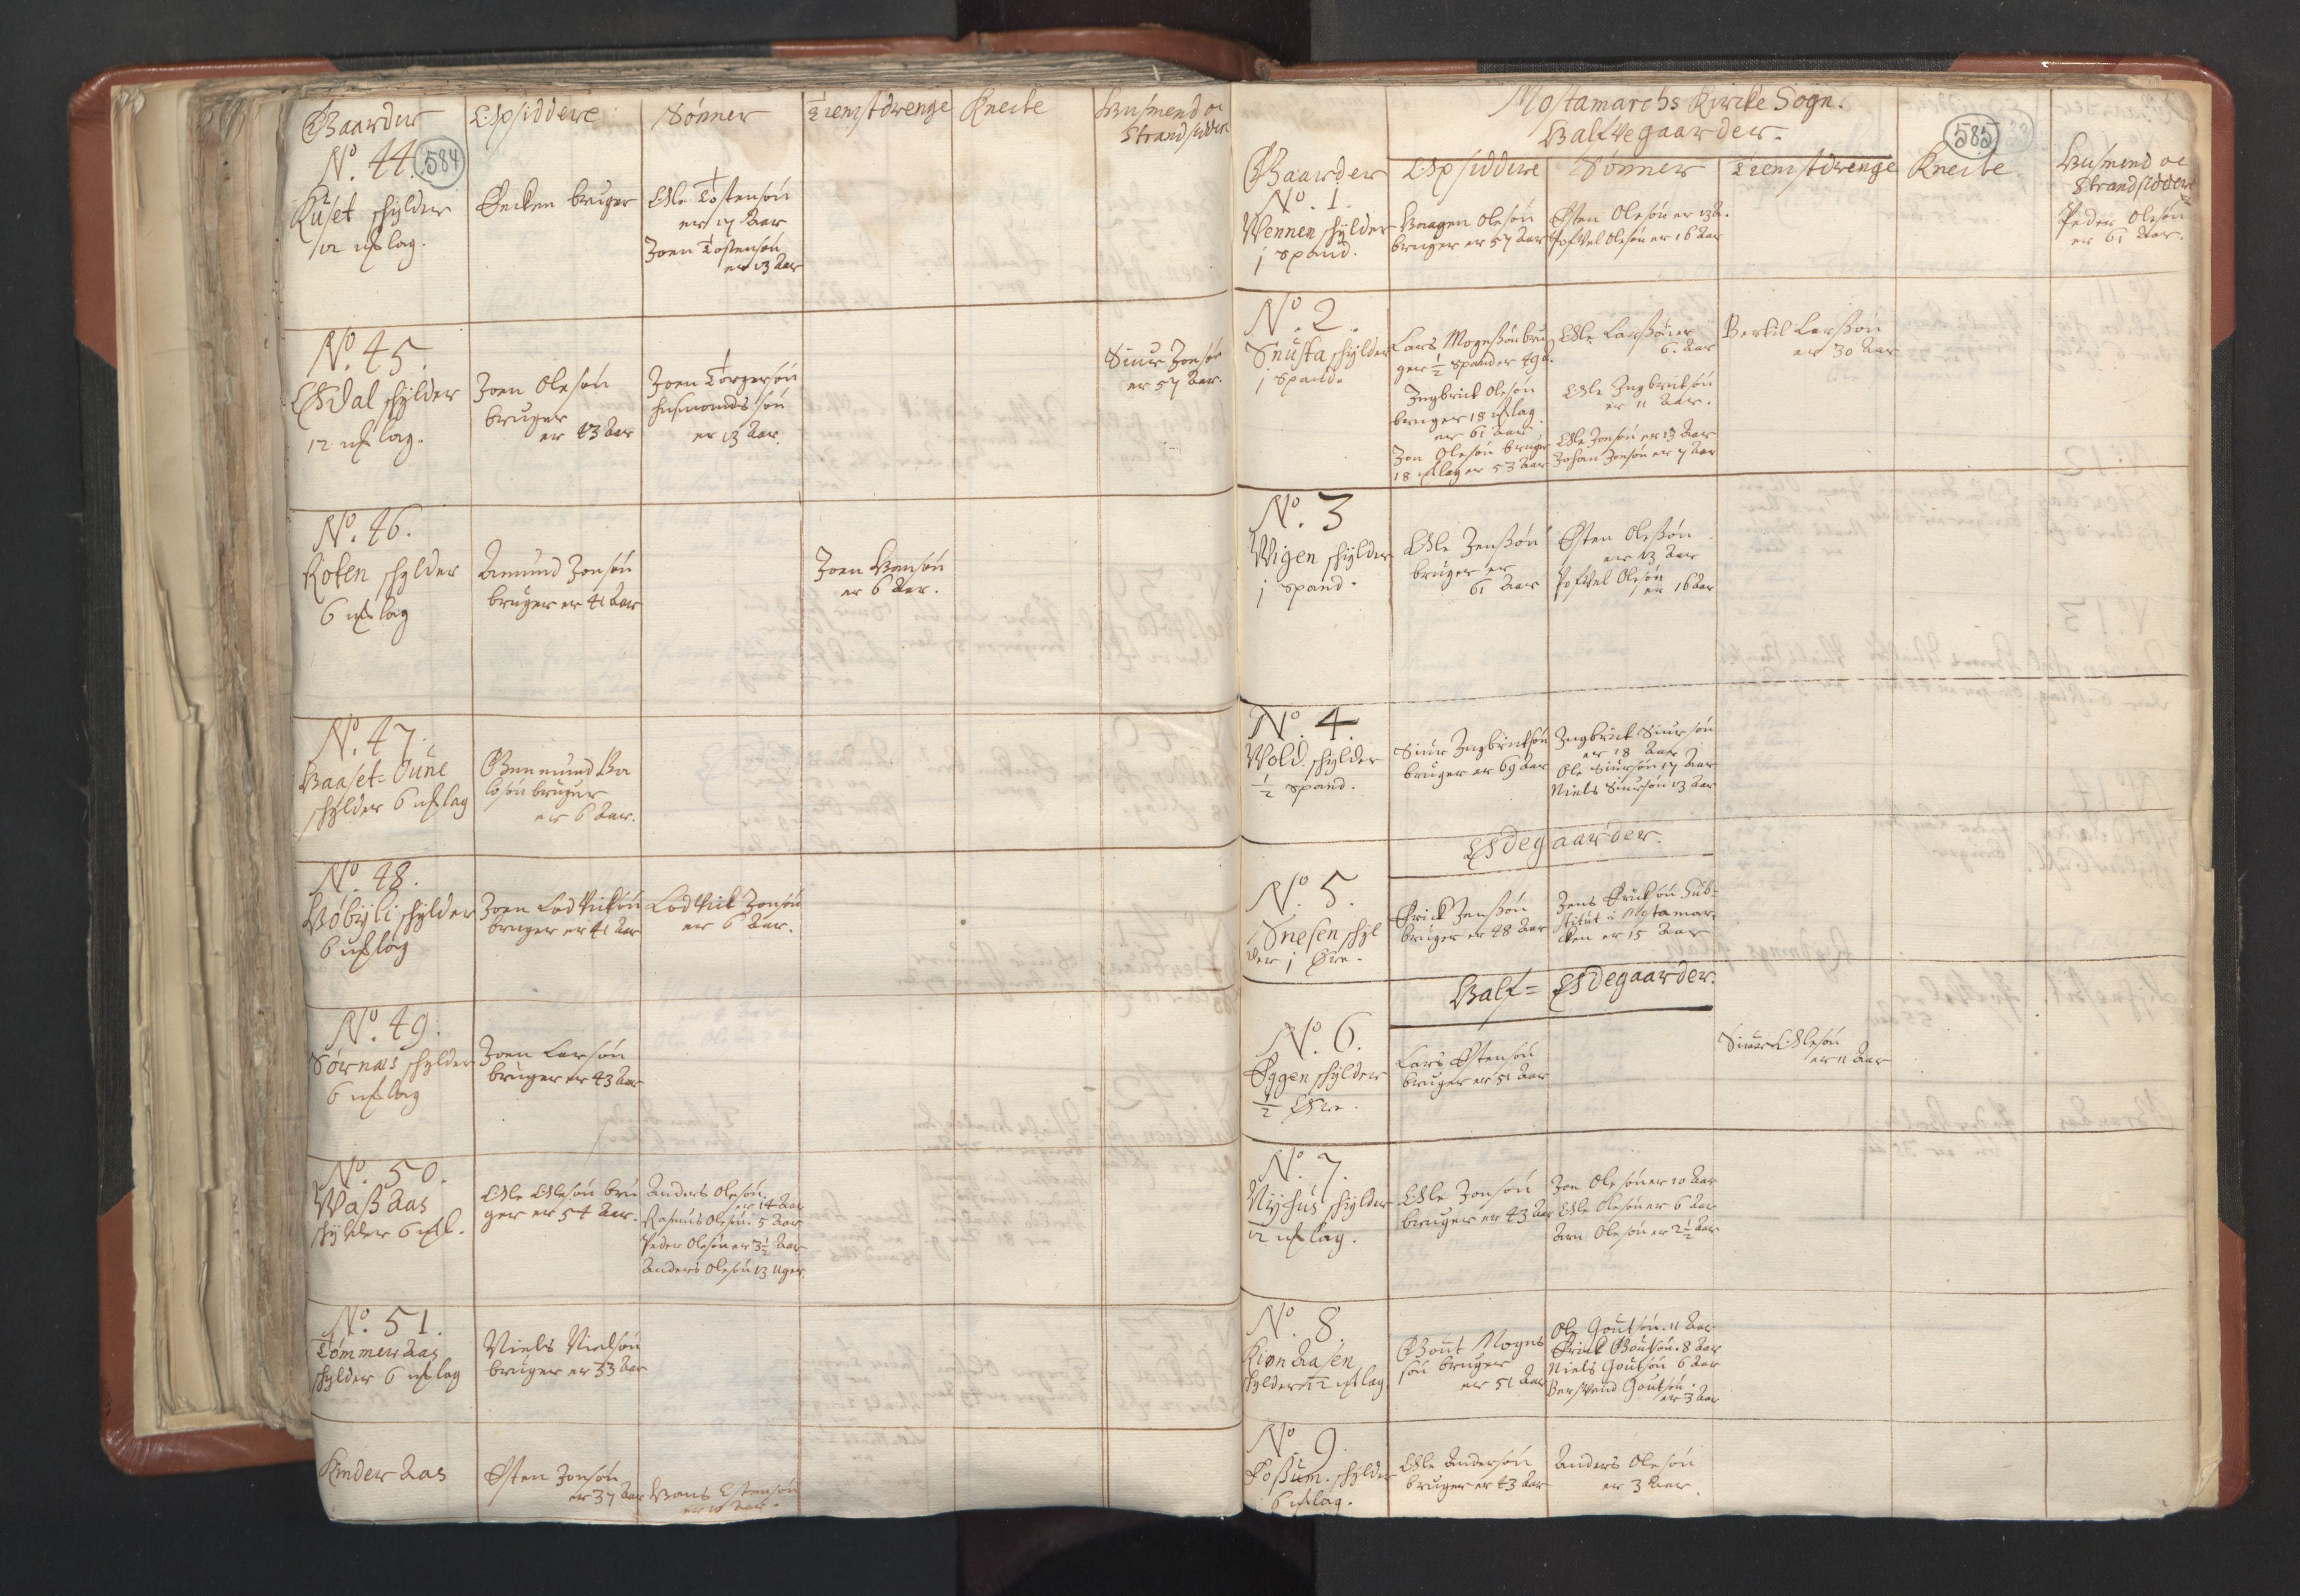 Gaarder
Opsiddere
Sønner
Tienistdrenge
Knecte
Husmend oc
Strandsidder
No. 44.
584
Kuset schylder
12 mßlag.
Encken bruger
Olle Tostensøn
er 17 Aar
Joen Tostensøn
er 13 Aar
No. 45.
Odal schylder
12 mßlag.
Joen Olesøn
bruger
er 43 Aar
Joen Torgersøn
husmands søn
er 13 Aar.
Siur Jonsøn
er 57 Aar.
No. 46.
Roten schylder
6 mßlag
Amund Jonsøn
bruger er 41 Aar
Joen Hansøn
er 6 Aar.
No. 47.
Haaset=Oune
schylder 6 mßlag
Gunmund
bruger
er 6 Aar.
No. 48.
Høbyli schylder
6 mßlag
Joen Lodvicksøn
bruger er 41 Aar
Lodvick Jonsøn
er 6 Aar.
No. 49.
Sørnæs schylder
6 mßlag
Joen Larsøn
bruger er 43 Aar
No. 50.
Waßaas
schylder 6 mßl.
Olle Olesøn bru
ger er 54 Aar.
Anders Olesøn.
er 14 Aar
Rasmus Olesøn. 5 Aar
Peder Olesøn er 3½ Aar
Anders Olesøn 13 uger.
No. 51.
Tømmeraas
schylder 6 mßlag
Niels Nielsøn
bruger er 33 Aar
Kinderaas
Østen Jonsøn
er 37 Aar
Hans Estensøn
er 10 Aar.
Mostamarchs Kircke Sogn.
Halfvegaarder.
585
Gaarder
Opsiddere
Sønner
Tienistdrenge
Knecte
Husmend oc
Strandsiddere
No. 1.
Wennen schylder
j spand.
Haagen Olesøn
bruger er 57 Aar
Østen Olesøn er 13 A.
Pofvel Olesøn er 16 Aar
Peder Olesøn
er 61 Aar.
No. 2.
Snusta schylder
j spand.
Lars Mogenßøn bru
ger ½ spand er 49 A.
Ingbrict Olesøn
bruger 18 mßlag.
er 61 Aar
Jon Olesøn bruger
18 mßlag er 53 Aar
Olle Larßøn er
6. Aar
Olle Ingbrictsøn
er 11 Aar.
Olle Jonsøn er 13 Aar
Johan Jonsøn er 7 Aar
Bertil Larßøn
er 30 Aar
No. 3
Wigen schylder
j spand.
Olle Jenßøn
bruger er
61 Aar
Østen Oleßøn
er 13 Aar
Pofvel Olesøn
er 16 Aar
No. 4.
Wold schylder
½ spand.
Siur Ingbrictsøn
bruger er 69 Aar
Ingbrict Siursøn
er 18 Aar
Ole Siursøn 17 Aar
Niels Siursøn 13 Aar
Ødegaarder.
No. 5.
Snesen schyl
der j Øre.
Erick Jenßøn
bruger er 48 Aar
Jens Ericksøn Sub=
stitut i Mostamar
cken er 15 Aar
Half= Ødegaarder.
No. 6.
Eggen schylder
½ Øre.
Lars Østensøn
bruger er 51 Aar
Siuer Ollesøn
er 11 Aar
No. 7.
Nyhus schylder
12 mßlag.
Olle Jonsøn
bruger er 43 Aar
Jon Olesøn er 10 Aar
Olle Olesøn er 6 Aar
Arn Olesøn er 2½ Aar
No. 8.
Kionaasen
schylder 12 mßlag.
Gout Mogns
søn bruger
er 51 Aar
Ole Goutsøn. 11 Aar
Erick Goutsøn. 8 Aar
Niels Goutsøn 6 Aar
Bersvend Goutsøn.
er 3 Aar
No. 9.
Foßum. schylder
6 mßlag.
Olle Andersøn
bruger er 43 Aar
Anders Olesøn
er 3 Aar.